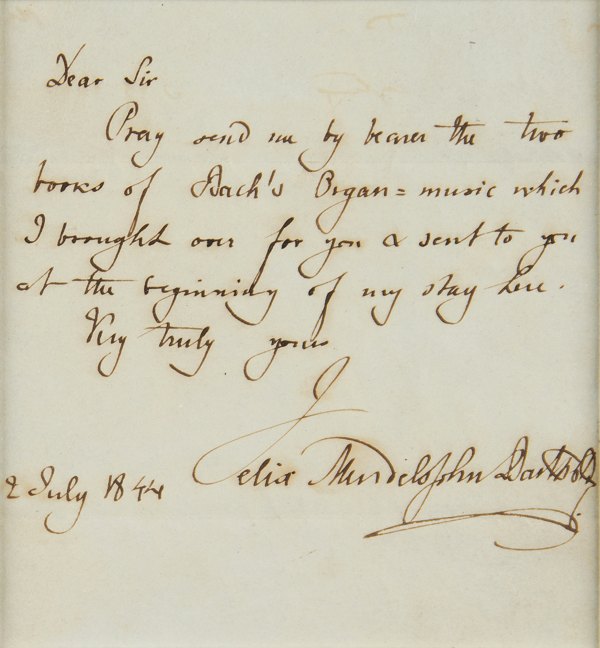 Dear Sir
Pray send me by bearer the two
books of Bach's Organ=music which
I brought over for you & sent to you
at the beginning of my stay here.
Very truly yours
Felix Mendelssohn Bartholdy
2 July 1844